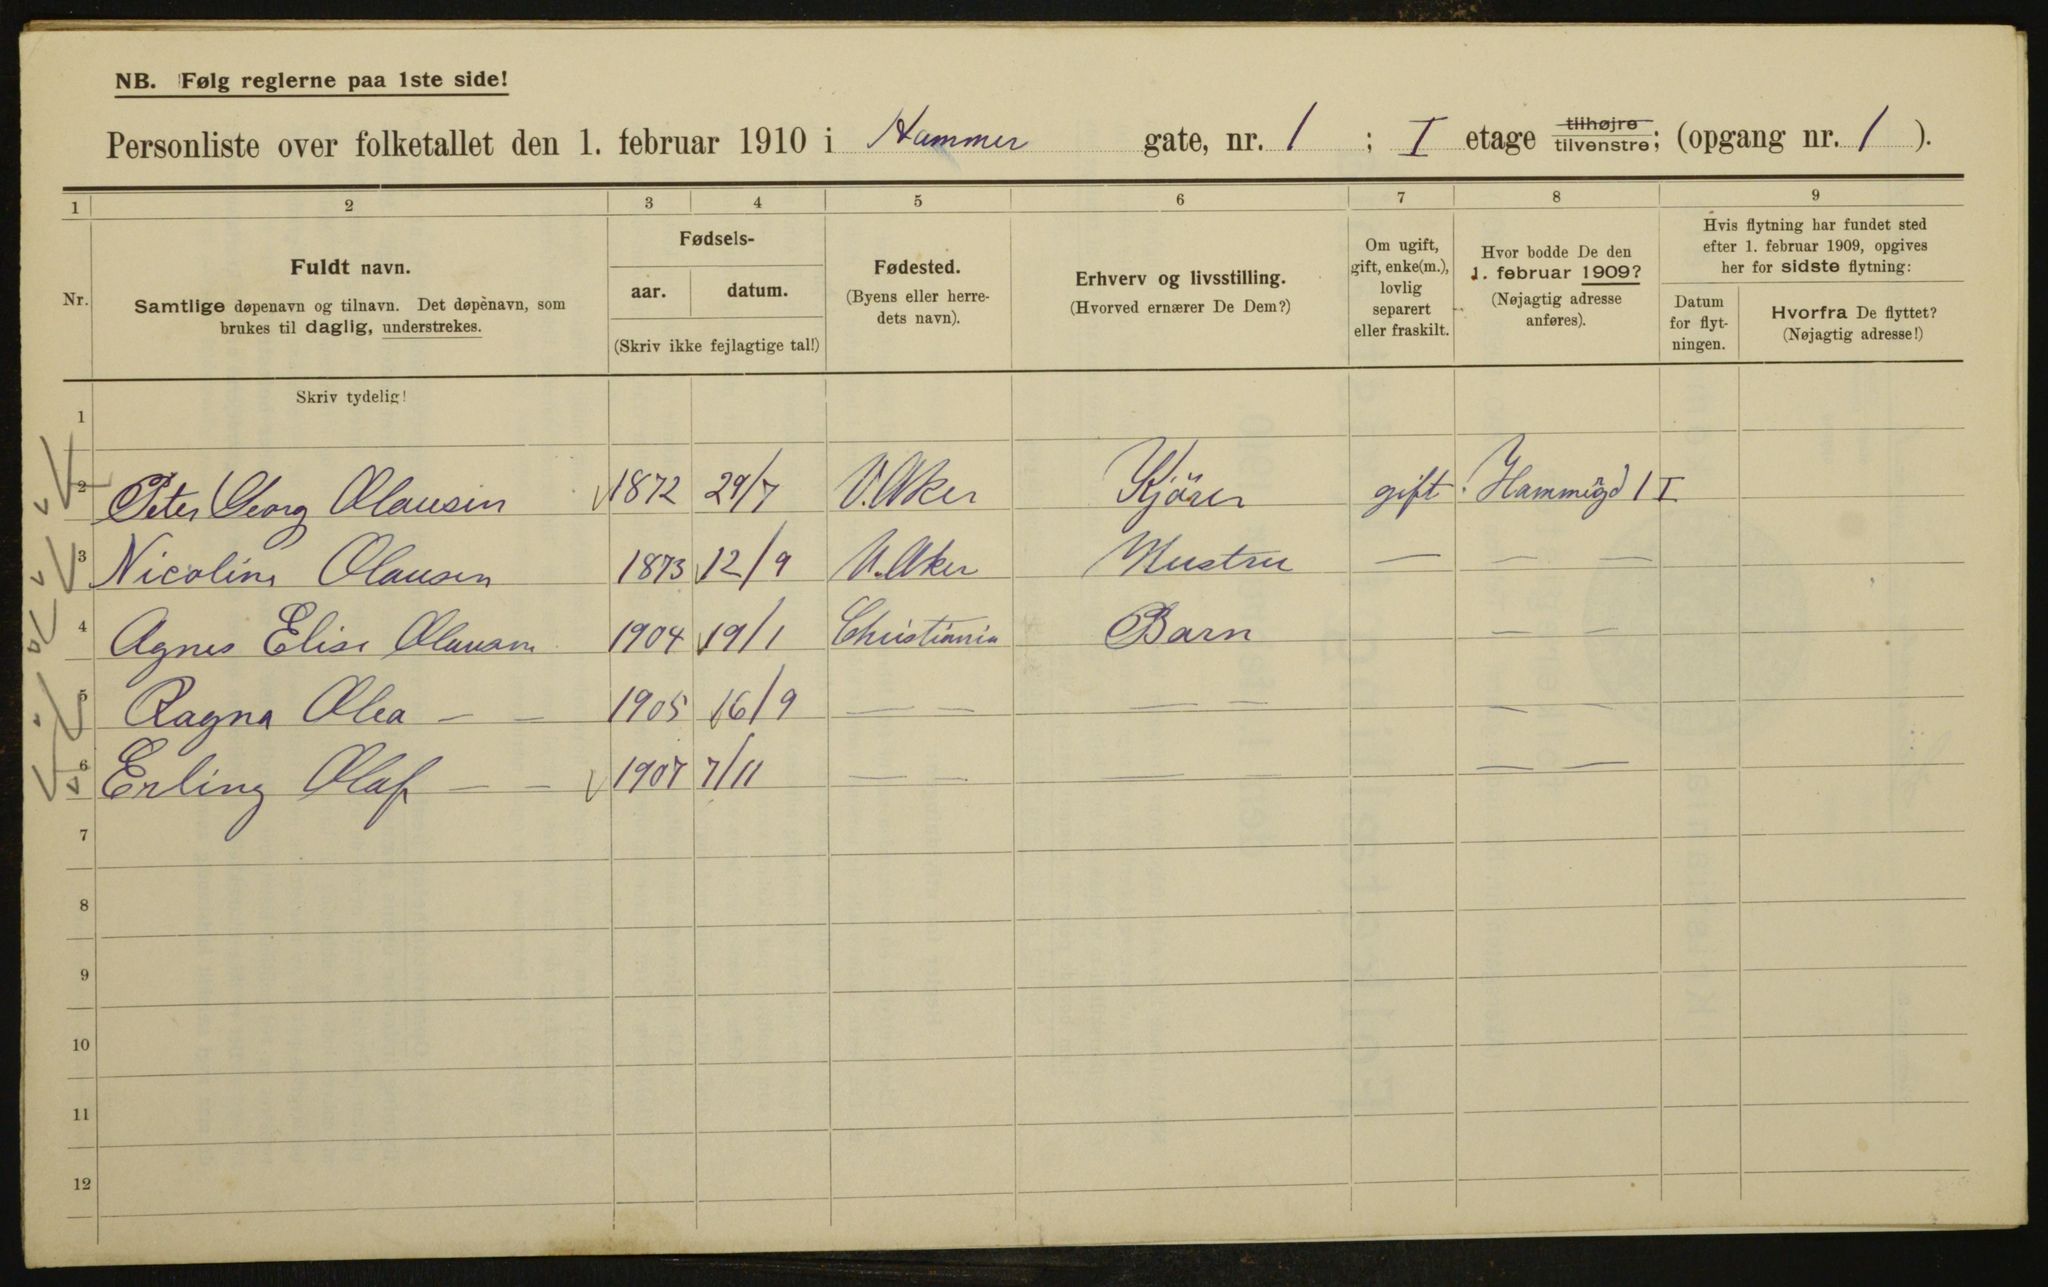 NB. Følg reglerne paa 1ste side!
Personliste over folketallet den 1. februar 1910 i Hammer gate, nr. 1 ; I etage tilhøjre tilvenstre; (opgang nr. 1 ).
1 2 3 4 5 6 7 8 9
Nr.
Fuldt navn.
Samtlige døpenavn og tilnavn. Det døpenavn, som
brukes til daglig, understrekes.
Fødsels-
aar. datum.
(Skriv ikke fejlagtige tal!)
Fødested.
(Byens eller herre-
dets navn).
Erhverv og livsstilling.
(Hvorved ernærer De Dem?)
Om ugift,
gift, enke(m.),
lovlig
separert
eller fraskilt.
Hvor bodde De den
1. februar 1909?
(Nøjagtig adresse
anføres).
Hvis flytning har fundet sted
efter 1. februar 1909, opgives
her for sidste flytning:
Datum
for flyt-
ningen.
Hvorfra De flyttet?
(Nøjagtig adresse!)
Skriv tydelig!
1
2 Peter Georg Olausen 1872 29/7 V.Aker Kjörer gift Hammergd 1 I
3 Nicoline Olausen 1873 12/9 V.Aker Hustru — — —
4 Agnes Elise Olausen 1904 19/1 Christiania Barn — —
5 Ragna Olea — — 1905 16/9 — — — — — —
6 Erling Olaf — — 1907 7/11 — — — — — —
7
8
9
10
11
12